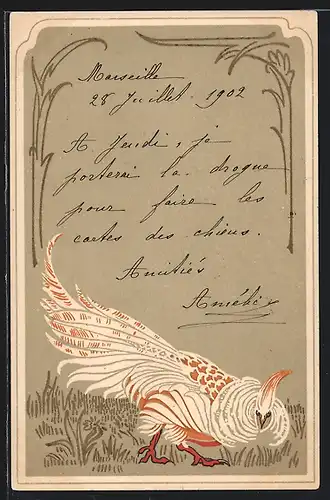 Marseille
28 Juillet 1902
A Jeudi, je
porterai la drogue
pour faire les
cartes des chiens.
Amitiés